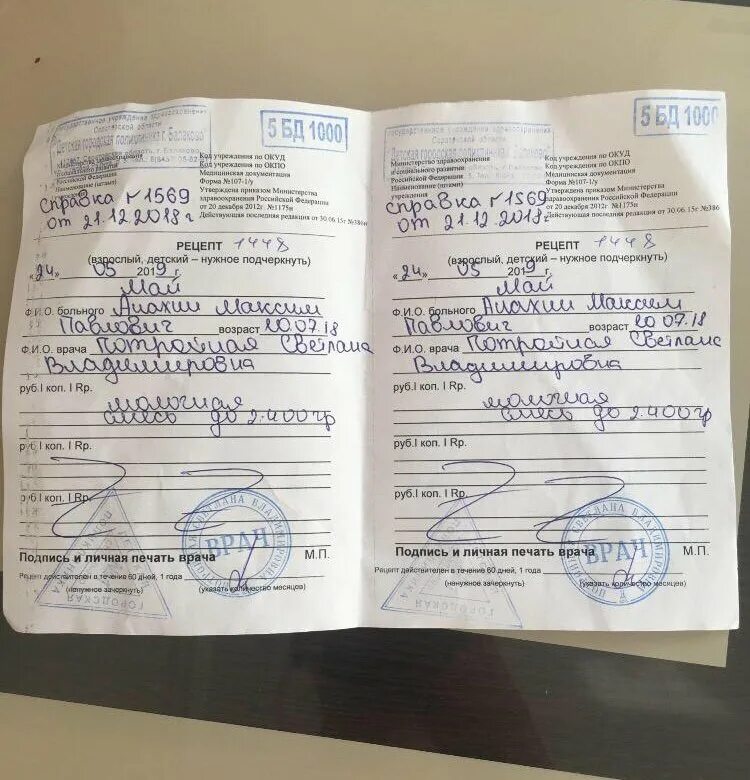 Государственное учреждение здравоохранения
Саратовской области
Детская городская поликлиника г. Балаково
5 БД 1000
Министерство здравоохранения
и социального развития
Российской Федерации
Наименование (штамп)
Код учреждения по ОКУД
Код учреждения по ОКПО
Медицинская документация
Форма №107-1/у
Утверждена приказом Министерства
здравоохранения Российской Федерации
от 20 декабря 2012г №1175н
Действующая последняя редакция от 30.06.15г №386н
справка №1569
от 21.12.2018г
РЕЦЕПТ 1448
(взрослый, детский – нужное подчеркнуть)
«24» 05 2019 г.
Май
Ф.И.О. больного Максим
Павлович возраст 20.07.18
Ф.И.О. врача Светлана
Владимировна
руб.I коп. I Rp.
молочная
смесь до 2.400гр
руб.I коп. I Rp.
руб.I коп. I Rp.
ВРАЧ
Подпись и личная печать врача М.П.
Рецепт действителен в течение 60 дней, 1 года
(ненужное зачеркнуть) (указать количество месяцев)
ГОРОДСКАЯ
Государственное учреждение здравоохранения
Саратовской области
Детская городская поликлиника г. Балаково
5 БД 1000
Министерство здравоохранения
и социального развития
Российской Федерации
Наименование (штамп)
учреждения
Код учреждения по ОКУД
Код учреждения по ОКПО
Медицинская документация
Форма №107-1/у
Утверждена приказом Министерства
здравоохранения Российской Федерации
от 20 декабря 2012г №1175н
Действующая последняя редакция от 30.06.15г №386н
справка №1569
от 21.12.2018г
РЕЦЕПТ 1448
(взрослый, детский – нужное подчеркнуть)
«24» 05 2019 г.
Май
Ф.И.О. больного Максим
Павлович возраст 20.07.18
Ф.И.О. врача Светлана
Владимировна
руб.I коп. I Rp.
молочная
смесь до 2.400гр
руб.I коп. I Rp.
руб.I коп. I Rp.
ВРАЧ
Подпись и личная печать врача М.П.
Рецепт действителен в течение 60 дней, 1 года
(ненужное зачеркнуть) (указать количество месяцев)
ГОРОДСКАЯ